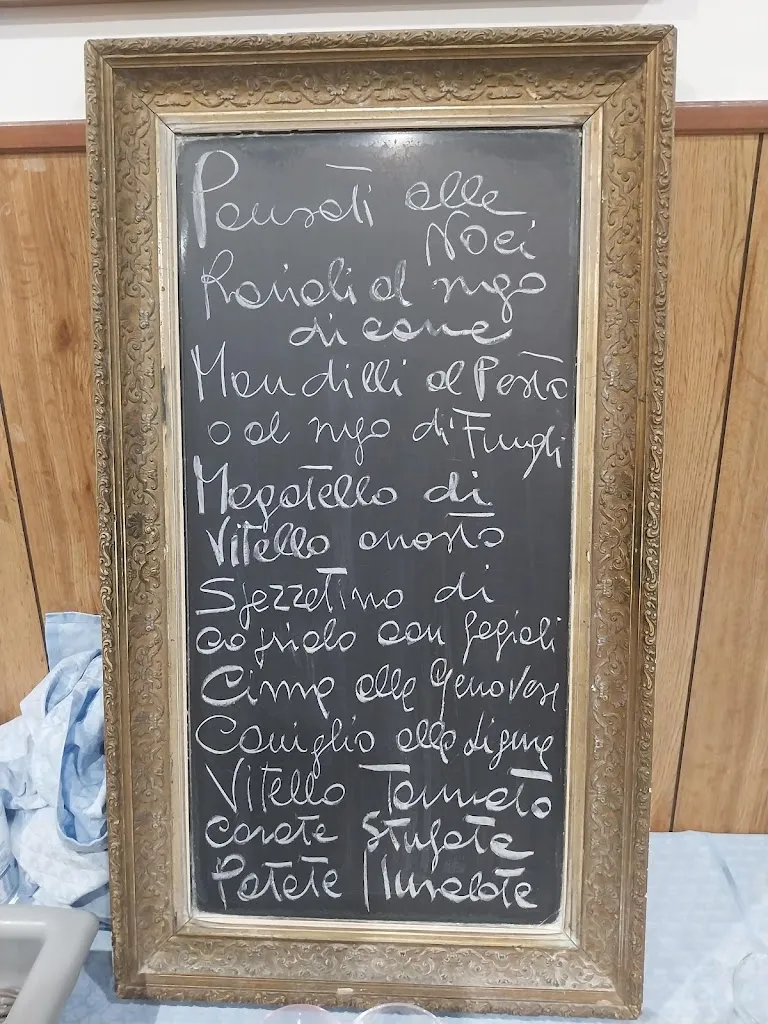 Pansoti alle
Noci
Ravioli al sugo
di carne
Mandilli al Pesto
o al sugo di Funghi
Magatello di
Vitello arrosto
Spezzatino di
con fagioli
Cima alla Genovese
Coniglio alla Ligure
Vitello Tonnato
carote Stufate
Patate | Insalate